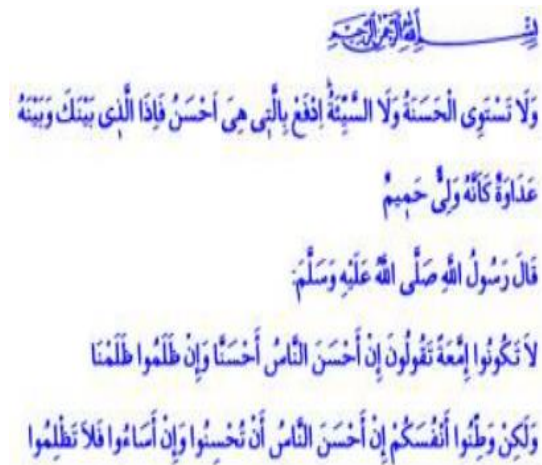 بِسْمِ اللَّهِ الرَّحْمَنِ الرَّحِيمِ
وَلَا تَسْتَوِى الْحَسَنَةُ وَلَا السَّيِّئَةُ اِدْفَعْ بِالَّتٖى هِىَ اَحْسَنُ فَاِذَا الَّذٖى بَيْنَكَ وَبَيْنَهُ
عَدَاوَةٌ كَاَنَّهُ وَلِىٌّ حَمٖيمٌ
قَالَ رَسُولُ اللَّهِ صَلَّى اللَّهُ عَلَيْهِ وَسَلَّمَ:
لاَ تَكُونُوا إِمَّعَةً تَقُولُونَ إِنْ أَحْسَنَ النَّاسُ أَحْسَنَّا وَإِنْ ظَلَمُوا ظَلَمْنَا
وَلَكِنْ وَطِّنُوا أَنْفُسَكُمْ إِنْ أَحْسَنَ النَّاسُ أَنْ تُحْسِنُوا وَإِنْ أَسَاءُوا فَلاَ تَظْلِمُوا